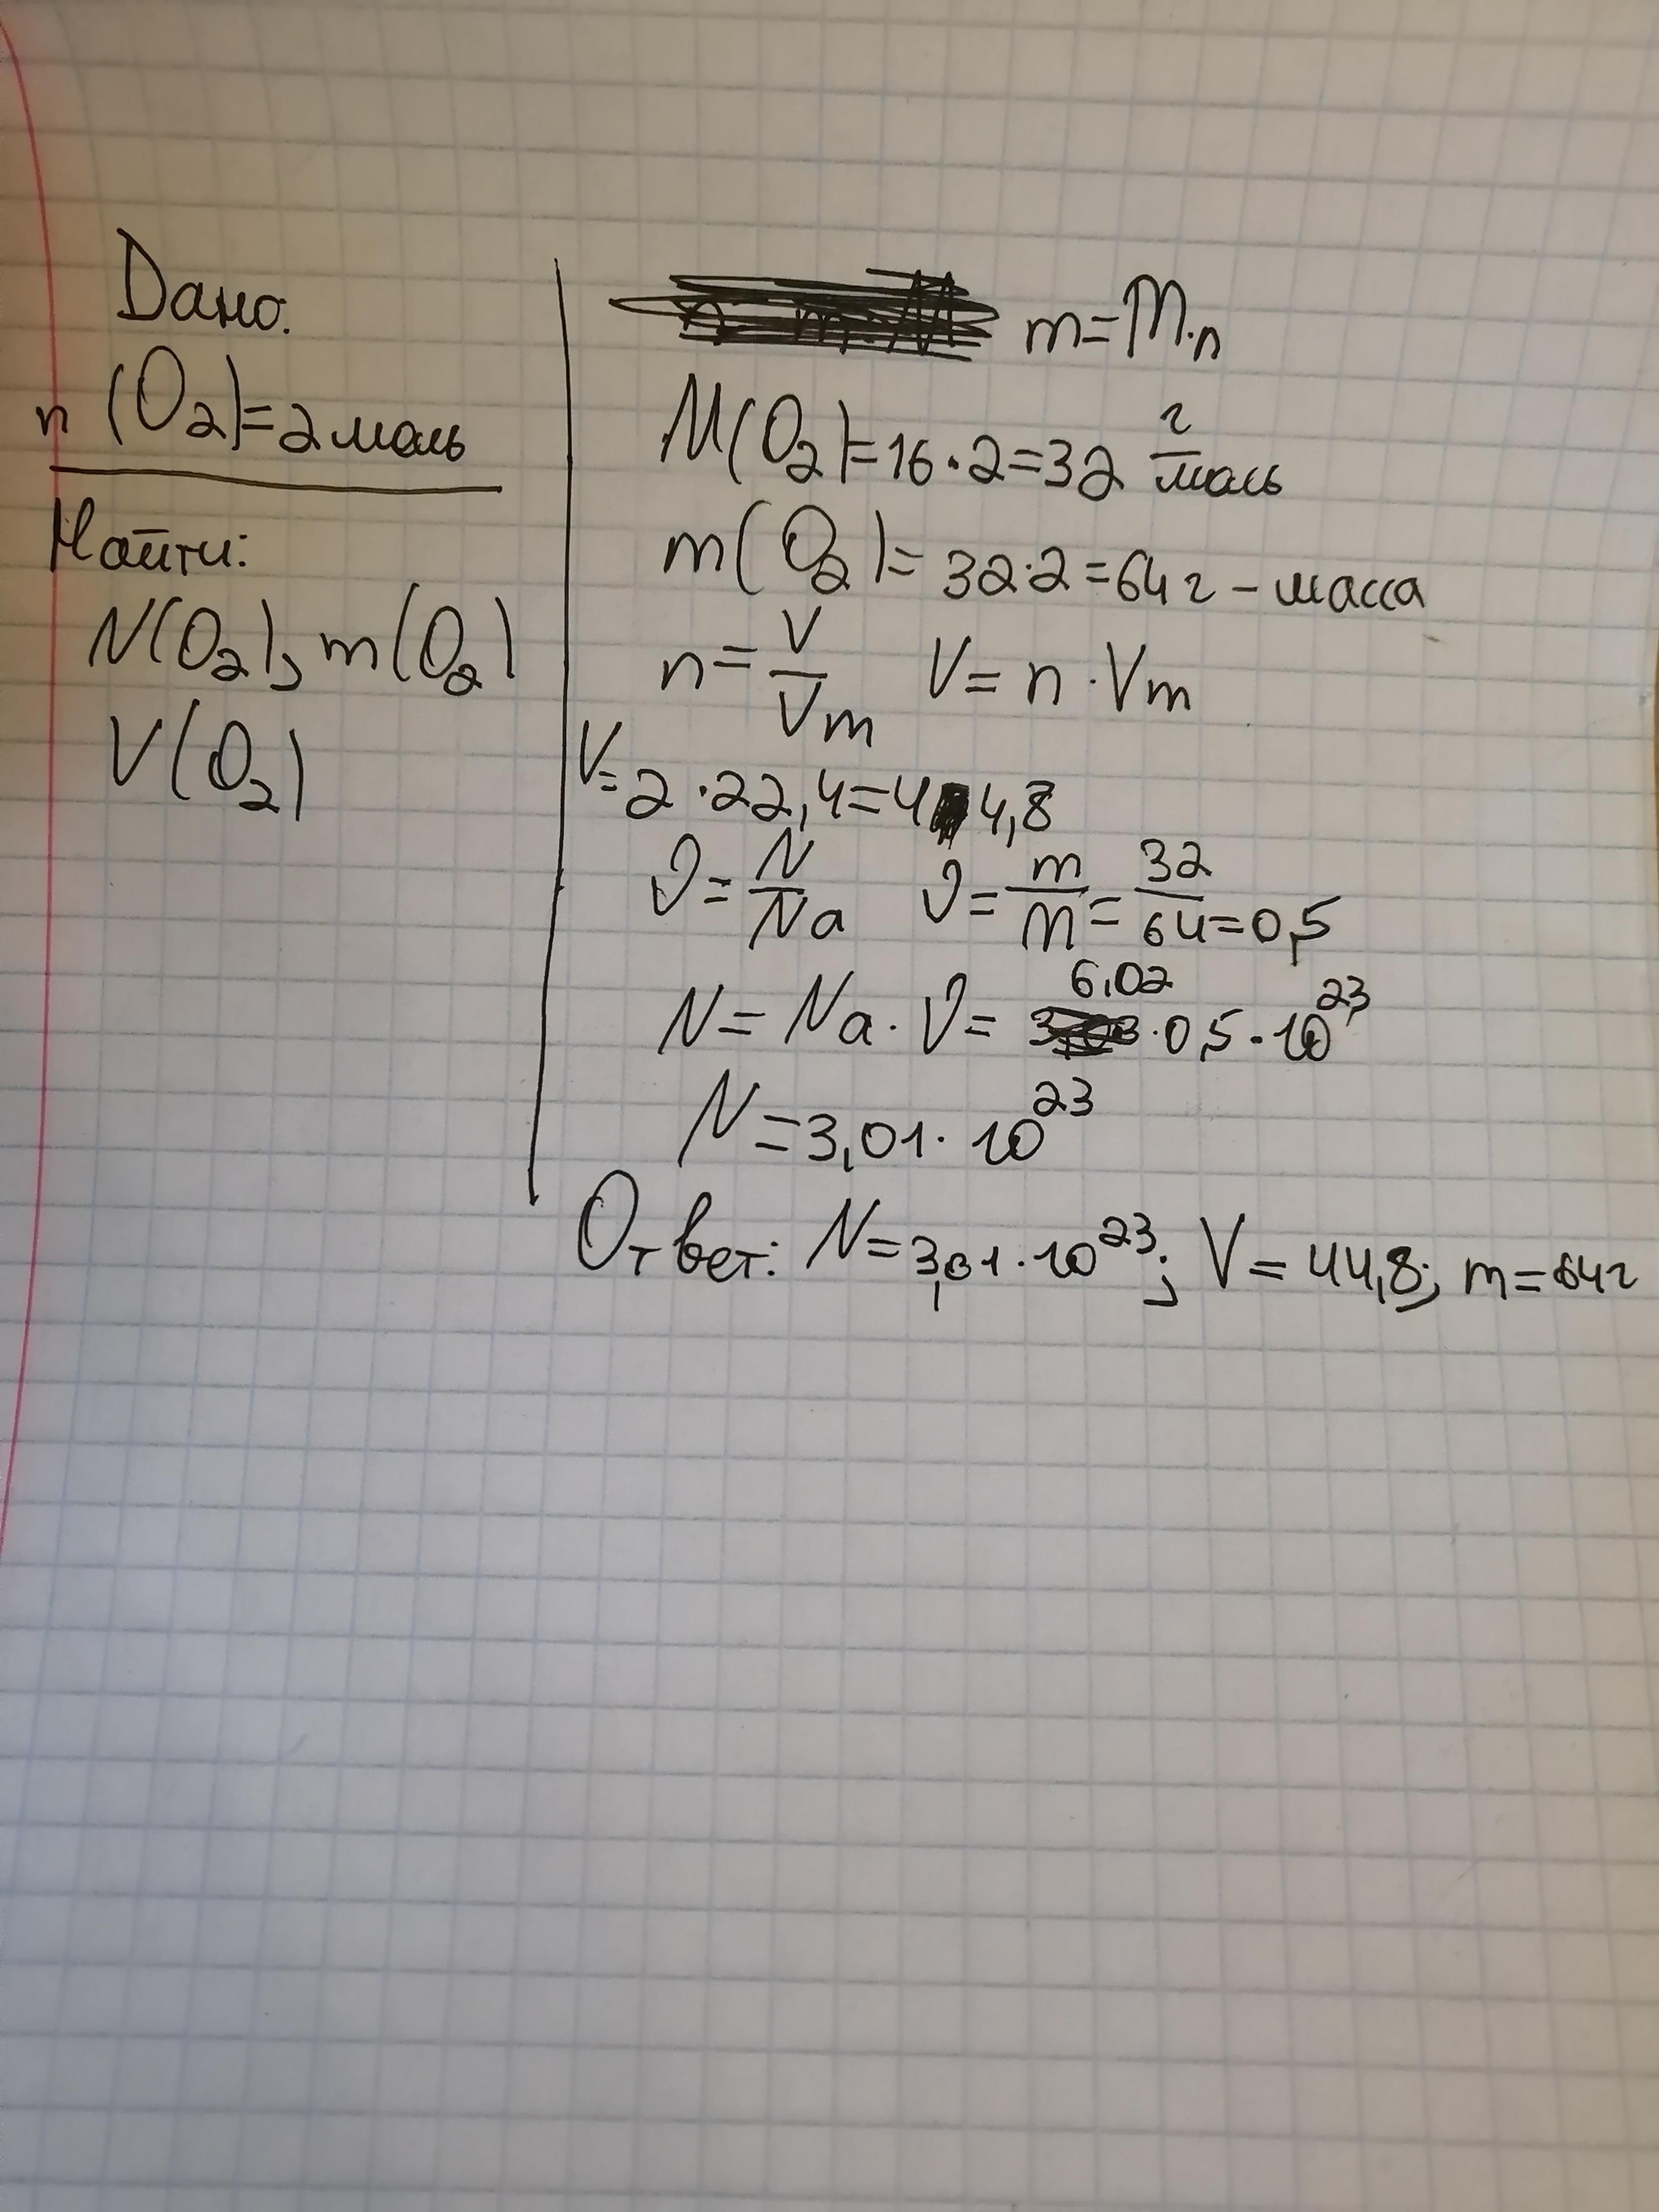 Дано.
n (O₂)=2 моль
Найти:
N(O₂), m(O₂)
V(O₂)
m=M·n
M(O₂)=16·2=32 г/моль
m(O₂)=32·2=64г – масса
n=V/Vm V=n·Vm
V=2·22,4=44,8
ϑ=N/Na ϑ=m/M=32/64=0,5
N=Na·ϑ=6,02·0,5·10²³
N=3,01·10²³
Ответ: N=3,01·10²³; V=44,8; m=64г